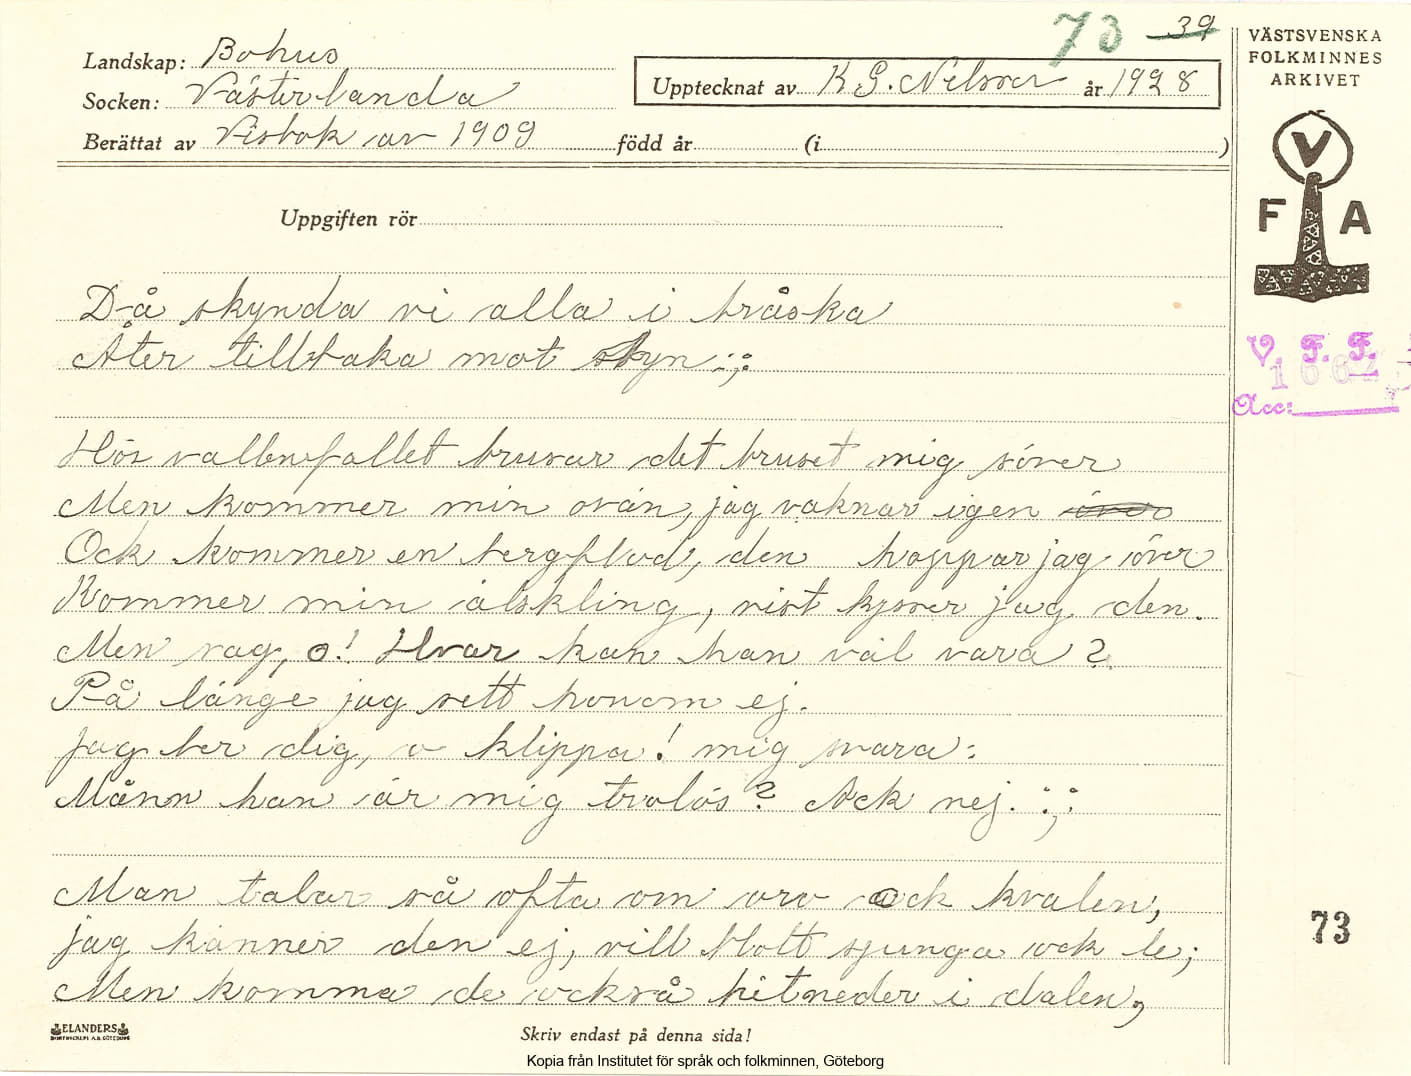 73 39
Landskap: Bohus
Socken: Västerlanda
Berättat av Visbok av 1909 född år (i )
Upptecknat av K G. Nelson år 1928
VÄSTSVENSKA
FOLKMINNES
ARKIVET
V
F A
V. F. F.
Acc:
Uppgiften rör
Då skynda vi alla i bråska
Åter tillbaka mot skyn :;:
Hör vallenfallet brusar det bruset mig söver
Men kommer min ovän, jag vaknar igen
Ock kommer en bergflod, den hoppar jag över
Kommer min älskling, vist kysser jag den.
Men sag, o! Hvar kan han väl vara?
På länge jag sett honom ej.
Jag ber dig, o klippa! mig svara:
Månn han är mig trolös? Ack nej. :;:
Man talar så ofta om oro ock kvalen,
jag känner den ej, vill blott sjunga ock le;
Men komma de också hitneder i dalen,
73
ELANDERS
Skriv endast på denna sida!
Kopia från Institutet för språk och folkminnen, Göteborg